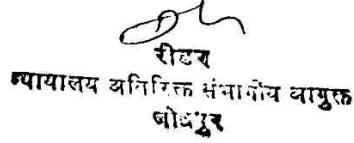 रीडर
न्यायालय अतिरिक्त संभागीय आयुक्त
जोधपुर